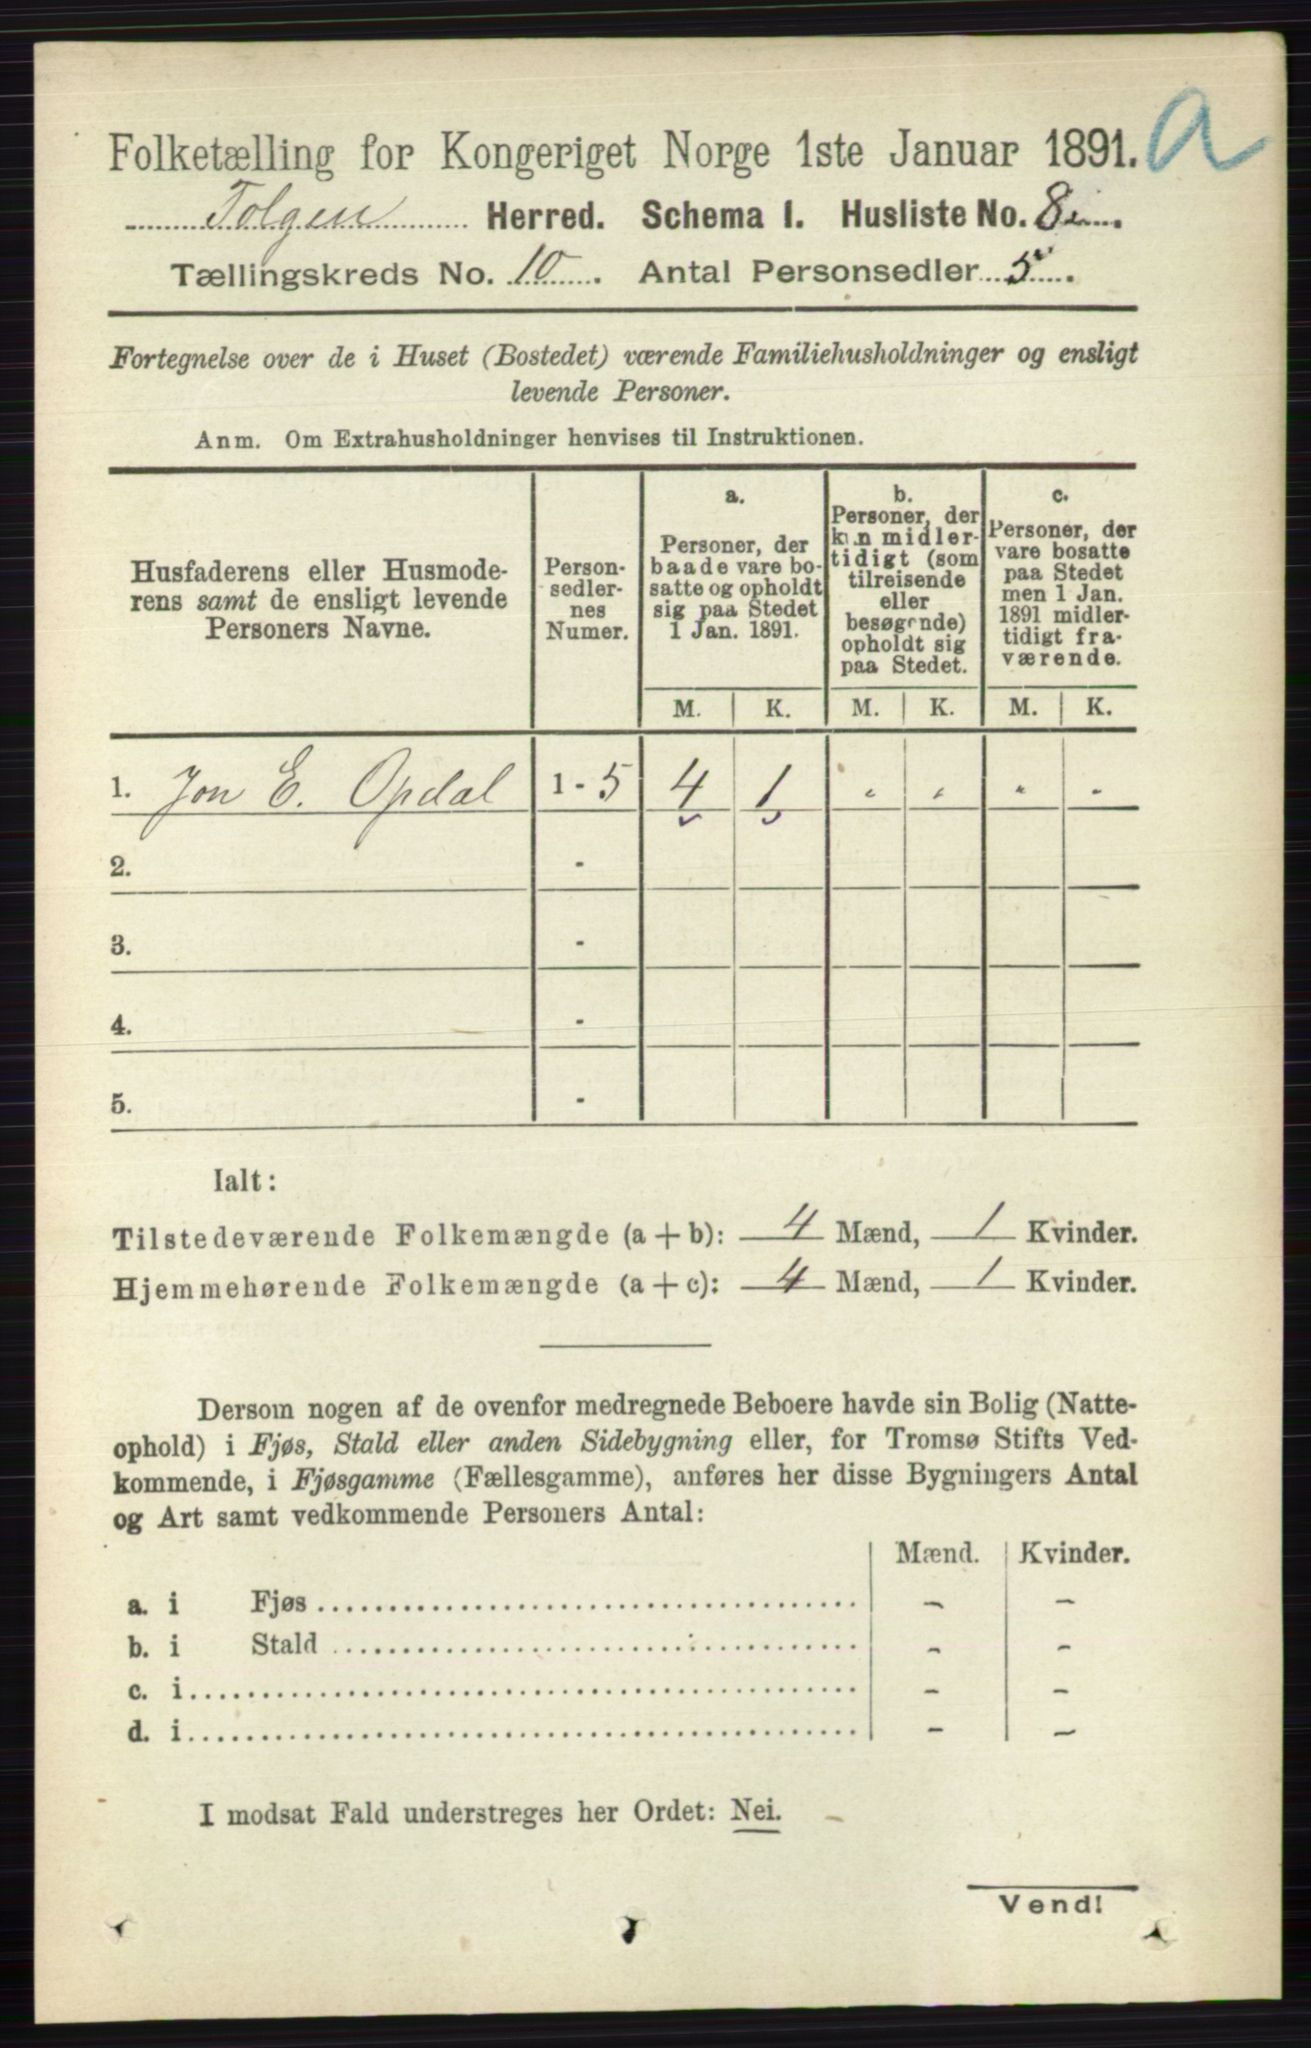 a
Folketælling for Kongeriget Norge 1ste Januar 1891.
Tolgen Herred. Schema 1. Husliste No. 8
Tællingskreds No. 10. Antal Personsedler 5.
Fortegnelse over de i Huset (Bostedet) værende Familiehusholdninger og ensligt
levende Personer.
Anm. Om Extrahusholdninger henvises til Instruktionen.
Husfaderens eller Husmode-
rens samt de ensligt levende
Personers Navne.
Person-
sedler-
nes
Numer.
a.
Personer, der
baade vare bo-
satte og opholdt
sig paa Stedet
1 Jan. 1891.
b.
Personer, der
kun midler-
tidigt (som
tilreisende
eller
besøgende)
opholdt sig
paa Stedet.
c.
Personer, der
vare bosatte
paa Stedet
men 1 Jan.
1891 midler-
tidigt fra-
værende.
M. K. M. K. M. K.
1. Jon E. Opdal 1 - 5 4 1 " " " -
2. -
3. -
4. -
5. -
Ialt:
Tilstedeværende Folkemængde (a + b): 4 Mænd, 1 Kvinder.
Hjemmehørende Folkemængde (a + c): 4 Mænd, 1 Kvinder.
Dersom nogen af de ovenfor medregnede Beboere havde sin Bolig (Natte-
ophold) i Fjøs, Stald eller anden Sidebygning eller, for Tromsø Stifts Ved-
kommende, i Fjøsgamme (Fællesgamme), anføres her disse Bygningers Antal
og Art samt vedkommende Personers Antal:
Mænd. Kvinder.
a. i Fjøs - -
b. i Stald - -
c. i - -
d. i - -
I modsat Fald understreges her Ordet: Nei.
Vend!